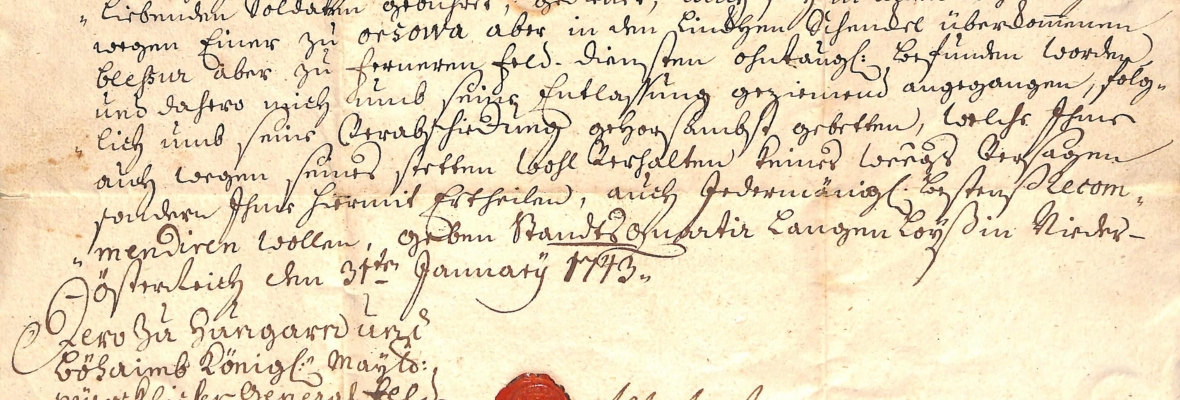 „ liebenden Soldaten gebühret,
wegen Einer zu orsowa aber in den Lincken Schenckel überkommenen
blessur aber zu ferneren feld-diensten ohntaugl: befunden worden,
und dahero mich umb seine Entlassung geziemend angegangen, folg-
„ lich umb seine Verabschiedung gehorsambst gebetten, welche Ihme
auch wegen seines stetten wohl Verhalten keines weegs Versagen
sondern Ihme hiermit Ertheilen, auch Jedermänigl: bestens Recom-
„ mendiren wollen, geben Standts Quartir Langen Loyß in Nieder-
„ österreich den 31ten January 1743.
Dero zu Hungarn und
böhaimb Königl: Mayst:
würcklicher General feld